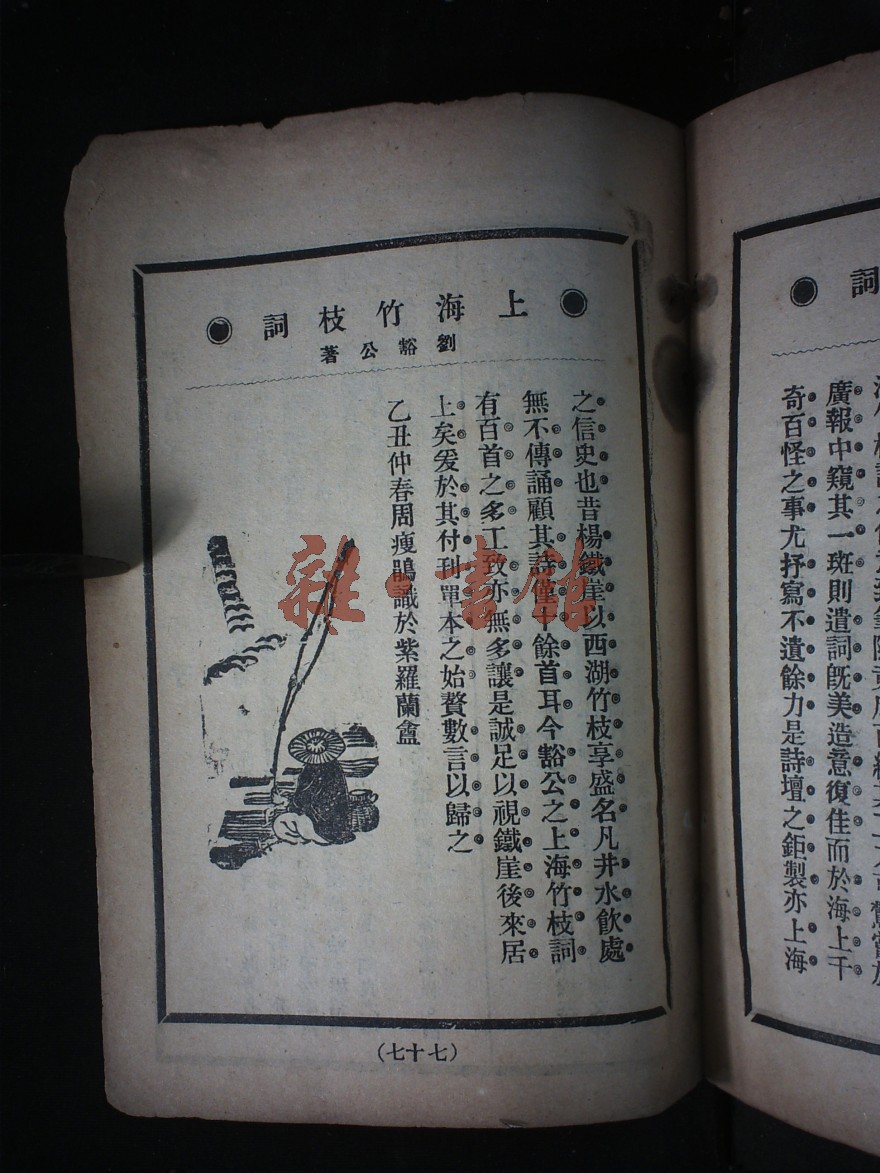 詞
廣報中窺其一斑則遣詞既美造意復佳而於海上千
奇百怪之事尤抒寫不遺餘力是詩壇之鉅製亦上海
上海竹枝詞
劉豁公著
之信史也昔楊鐵崖以西湖竹枝享盛名凡井水飲處
無不傳誦顧其詩僅十餘首耳今豁公之上海竹枝詞
有百首之多工致亦無多讓是誠足以視鐵崖後來居
上矣爰於其付刊單本之始贅數言以歸之
乙丑仲春周瘦鵑識於紫羅蘭盦
(七十七)
雜·書館